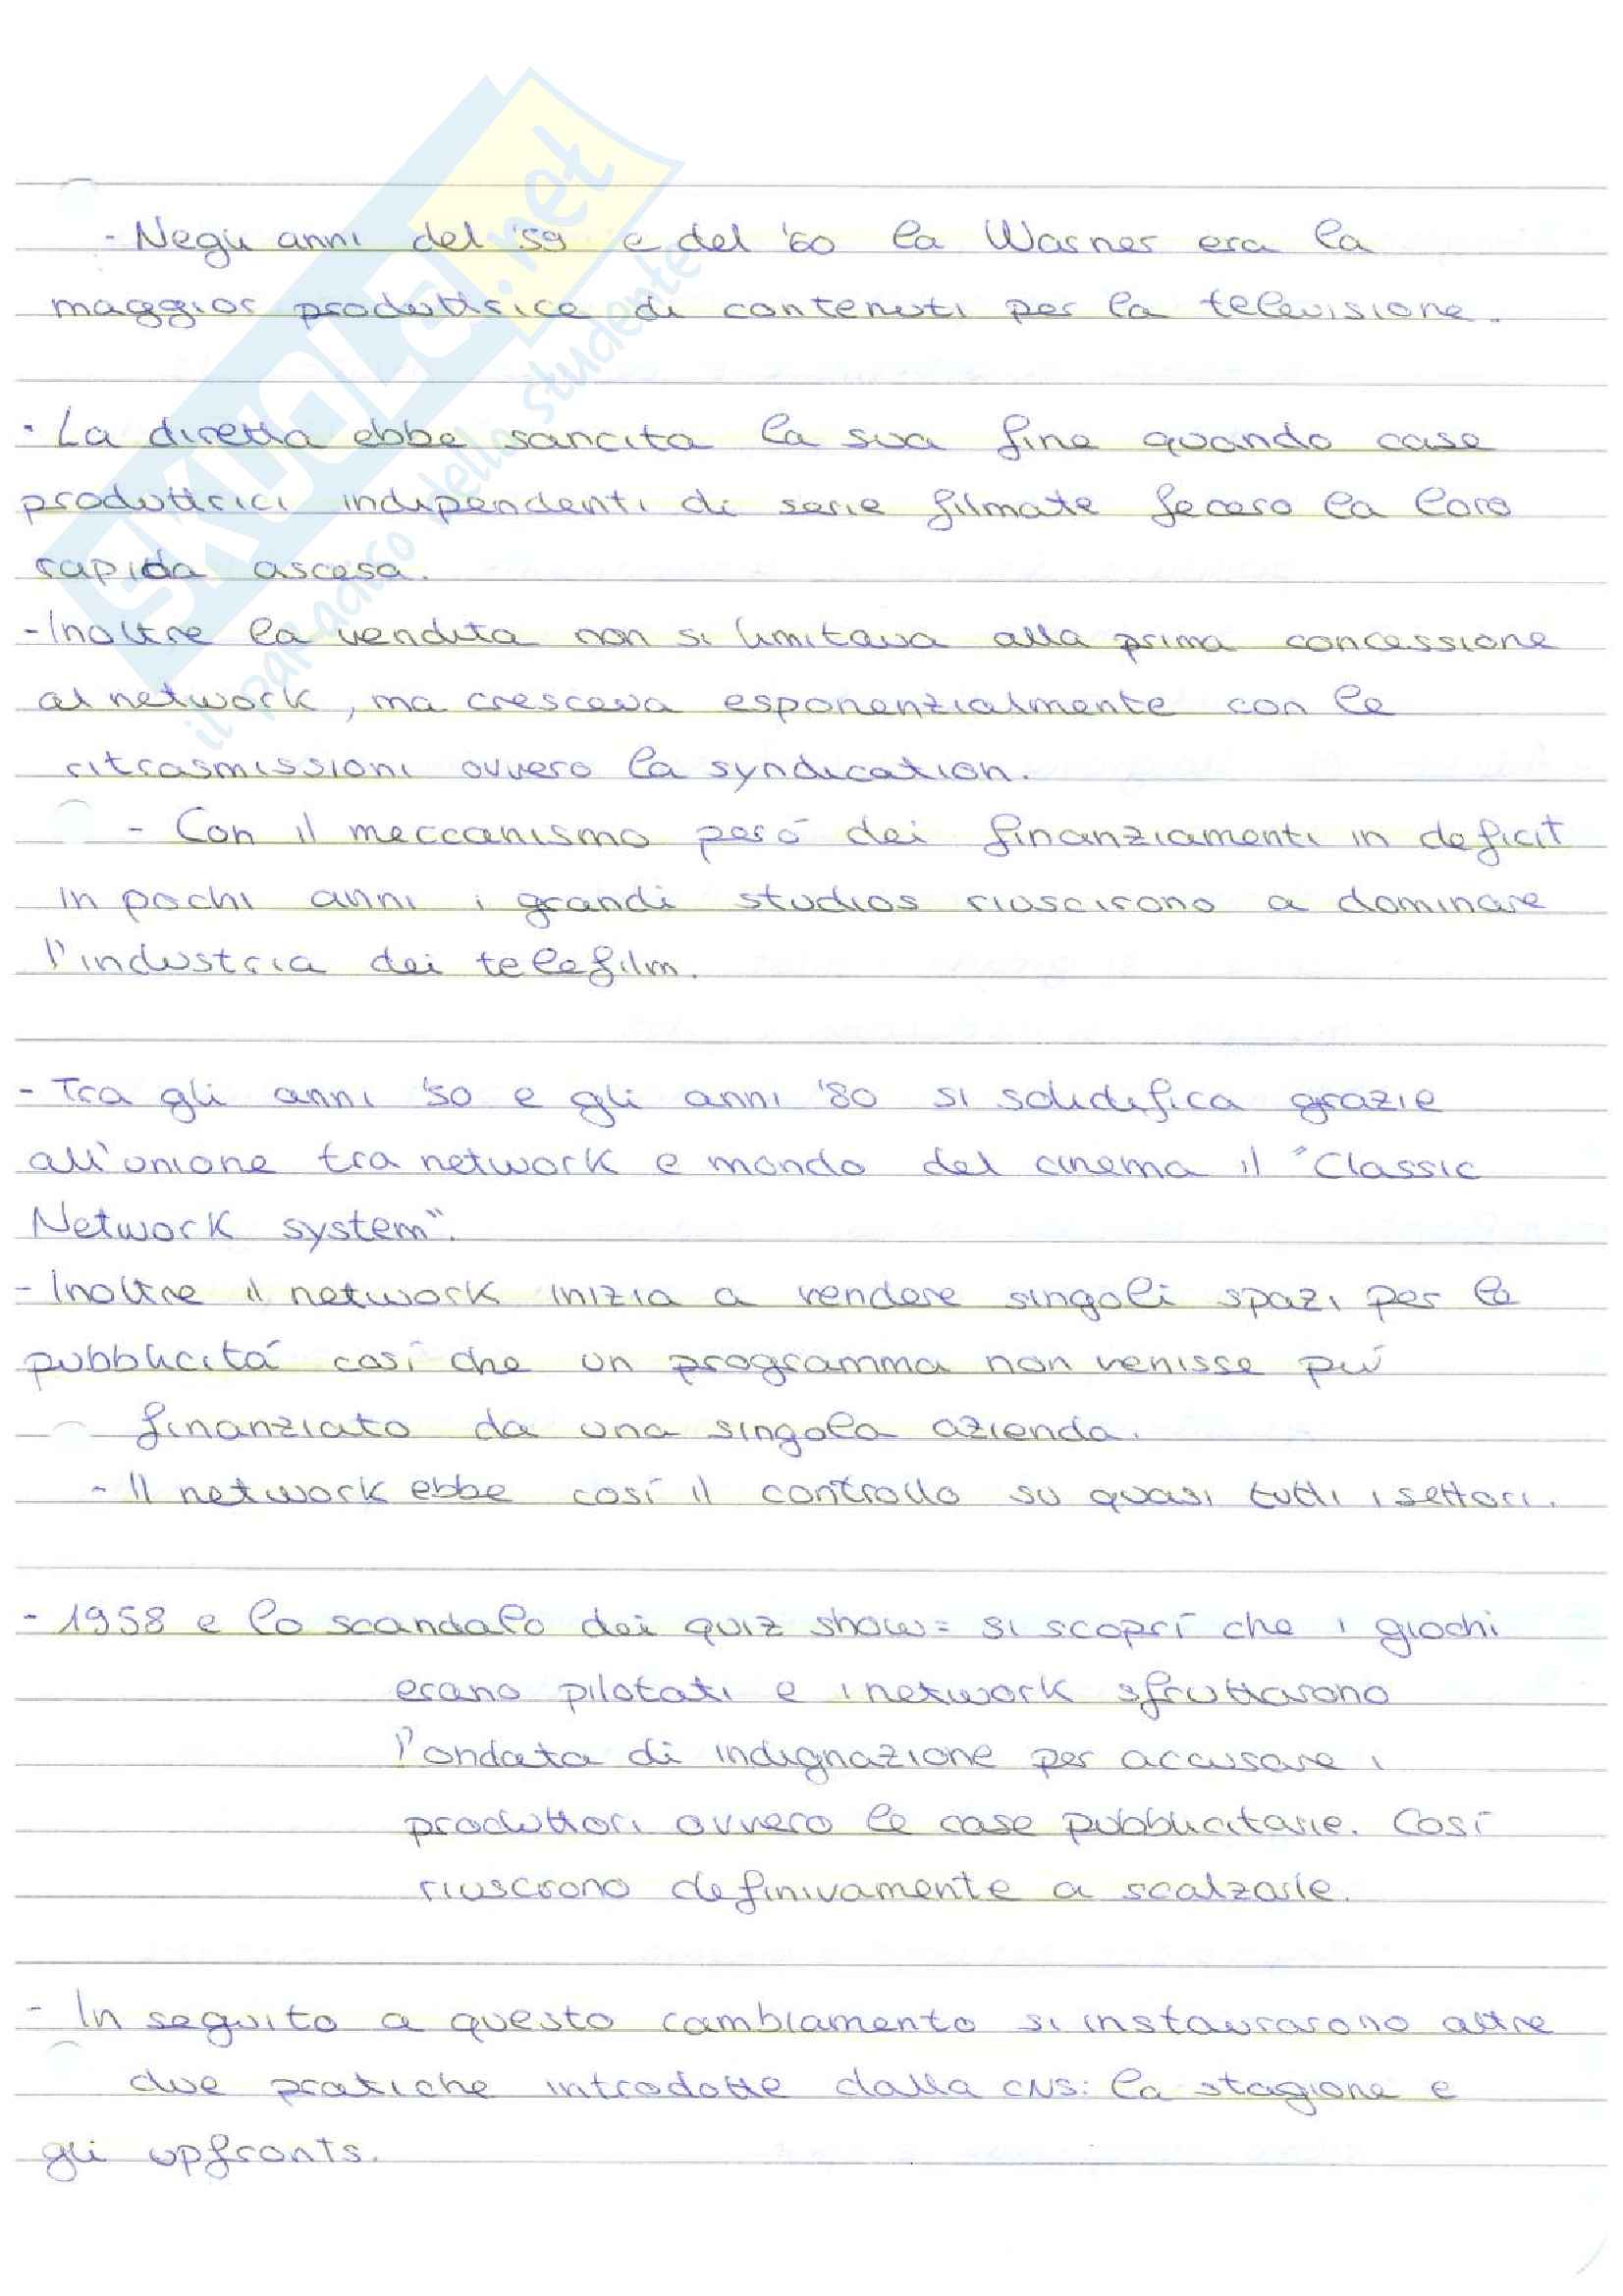 - Negli anni del '59 e del '60 la Warner era la
maggior produttrice di contenuti per la televisione.
- La diretta ebbe sancita la sua fine quando case
produttrici indipendenti di serie filmate fecero la loro
rapida ascesa.
- Inoltre la vendita non si limitava alla prima concessione
al network, ma cresceva esponenzialmente con le
ritrasmissioni ovvero la syndication.
- Con il meccanismo peró dei finanziamenti in deficit
in pochi anni i grandi studios riuscirono a dominare
l'industria dei telefilm.
- Tra gli anni '50 e gli anni '80 si solidifica grazie
all'unione tra network e mondo del cinema il "Classic
Network system".
- Inoltre il network inizia a vendere singoli spazi per la
pubblicitá cosí che un programma non venisse piú
finanziato da una singola azienda.
- Il network ebbe cosí il controllo su quasi tutti i settori.
- 1958 e lo scandalo dei quiz show = si scoprí che i giochi
erano pilotati e i network sfruttarono
l'ondata di indignazione per accusare i
produttori ovvero le case pubblicitarie. Cosí
riuscrono definivamente a scalzarle.
- In seguito a questo cambiamento si instaurarono altre
due pratiche introdotte dalla CNS: la stagione e
gli upfronts.
SKUOLA.net
il paradiso dello studente